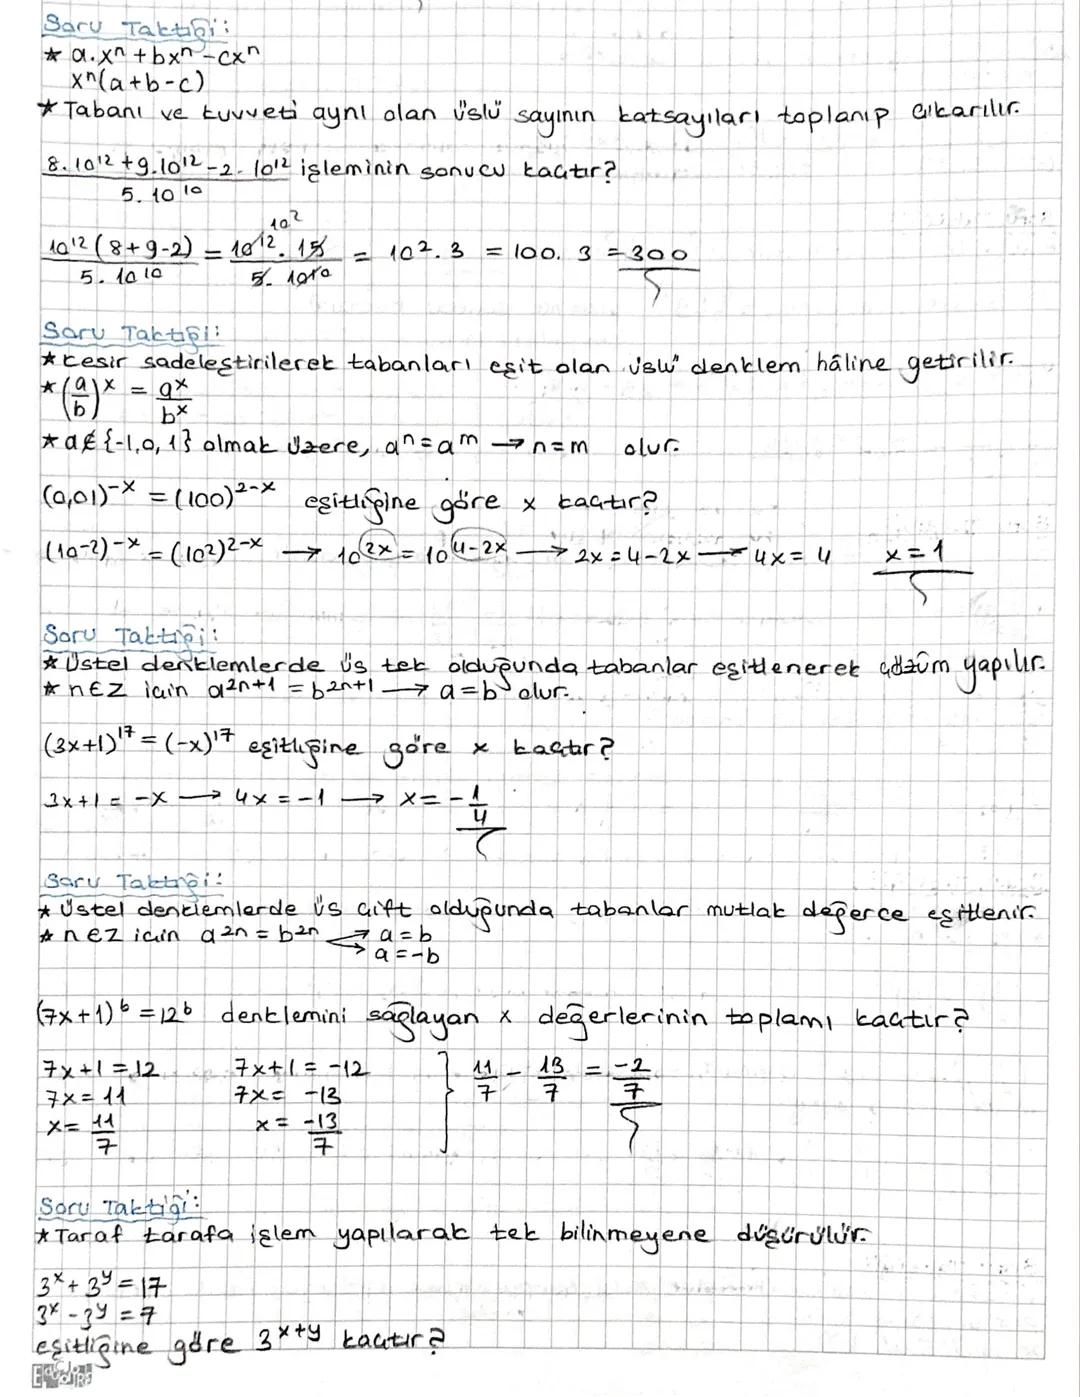 Soru Taktiği:
* a.xⁿ + bxⁿ - cxⁿ
xⁿ(a+b-c)
* Tabanı ve kuvveti aynı olan üslü sayının katsayıları toplanıp çıkarılır.
8.10¹² + 9.10¹² - 2.10¹² işleminin sonucu kaçtır?
5.10¹⁰
10²
10¹²(8+9-2) = 10¹².15 = 10².3 = 100.3 = 300
5.10¹⁰ 5.10¹⁰
Soru Taktiği:
* Kesir sadeleştirilerek tabanları eşit olan üslü denklem hâline getirilir.
* (a/b)ˣ = aˣ/bˣ
* a∉{-1,0,1} olmak üzere, aⁿ = aᵐ → n=m olur.
(0,01)⁻ˣ = (100)²⁻ˣ eşitliğine göre x kaçtır?
(10⁻²)⁻ˣ = (10²)²⁻ˣ → 10²ˣ = 10⁴⁻²ˣ → 2x = 4-2x → 4x = 4 x = 1
Soru Taktiği:
* Üstel denklemlerde üs tek olduğunda tabanlar eşitlenerek çözüm yapılır.
* n∈Z için a²ⁿ⁺¹ = b²ⁿ⁺¹ → a=b olur.
(3x+1)¹⁷ = (-x)¹⁷ eşitliğine göre x kaçtır?
3x+1 = -x → 4x = -1 → x = -1/4
Soru Taktiği:
* Üstel denklemlerde üs çift olduğunda tabanlar mutlak değerce eşitlenir.
* n∈Z için a²ⁿ = b²ⁿ → a=b
→ a=-b
(7x+1)⁶ = 12⁶ denklemini sağlayan x değerlerinin toplamı kaçtır?
7x+1 = 12 7x+1 = -12 } 11/7 - 13/7 = -2/7
7x = 11 7x = -13
x = 11/7 x = -13/7
Soru Taktiği:
* Taraf tarafa işlem yapılarak tek bilinmeyene düşürülür.
3ˣ + 3ʸ = 17
3ˣ - 3ʸ = 7
eşitliğine göre 3ˣ⁺ʸ kaçtır?